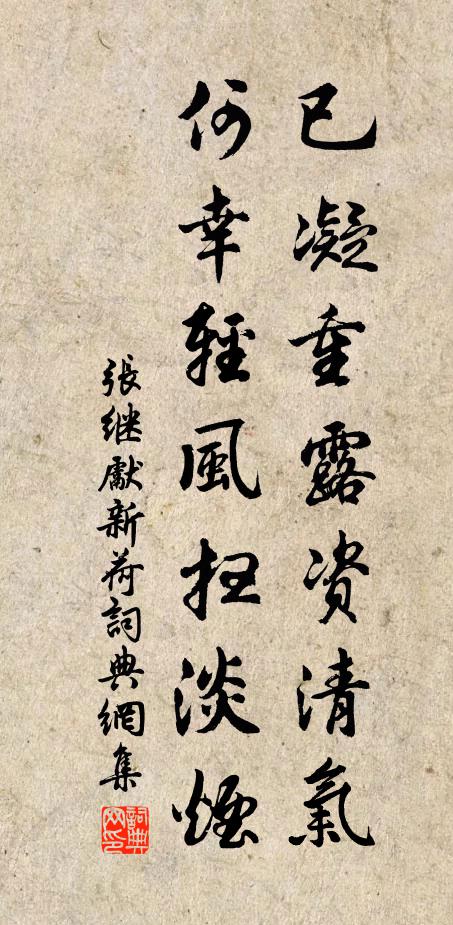 已凝重露资清氣
何幸輕風扫淡煙
張继獻新荷詞典網集
詞典
网印